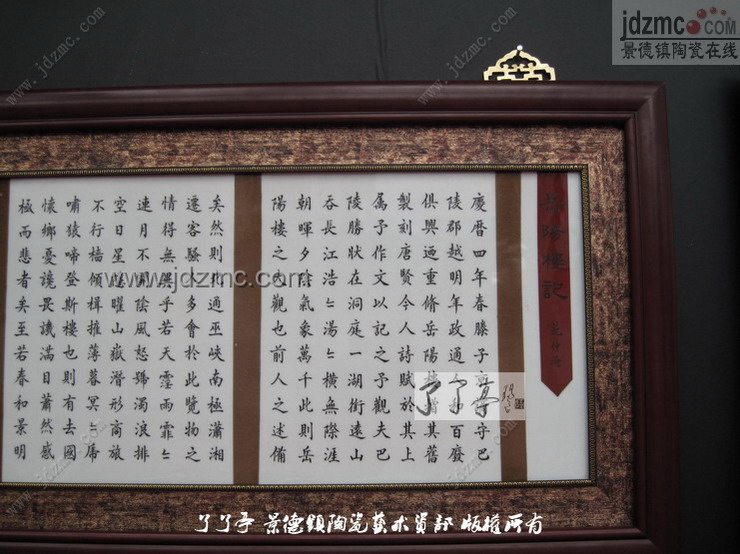 jdzmc.COM
景德镇陶瓷在线
陽樓記
慶曆四年春滕子守巴
陵郡越明年政通百廢
俱興迺重脩岳陽其舊
製刻唐賢今人詩賦於其上
属予作文以記之予觀夫巴
陵勝狀在洞庭一湖銜遠山
吞長江浩〻湯〻橫無際涯
朝暉夕陰氣象萬千此則岳
陽樓之大觀也前人之述備
矣然則北通巫峽南極瀟湘
遷客騷人多會於此覽物之
情得無異乎若天霪雨霏〻
連月不開陰風怒號濁浪排
空日星隱曜山嶽潛形商旅
不行檣傾楫摧薄暮冥〻虎
嘯猿啼登斯樓也則有去國
懷鄉憂讒畏譏滿目蕭然感
極而悲者矣至若春和景明
www.jdzmc.com
了了亭
了了亭 景德镇陶瓷艺术资料 版权所有